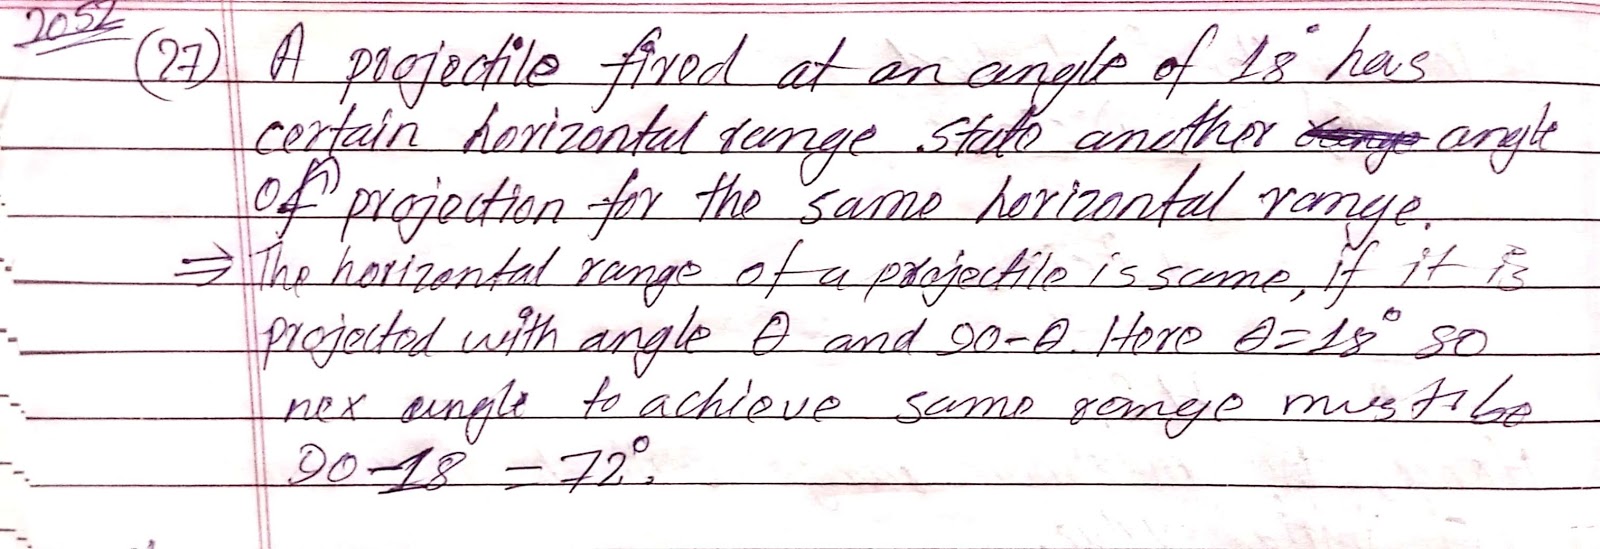 2052
(27) A projectile fired at an angle of 18° has
certain horizontal range state another angle
of projection for the same horizontal range.
⇒ The horizontal range of a projectile is same, if it is
projected with angle θ and 90-θ. Here θ=18° so
nex angle to achieve same range must be
90-18 = 72°.